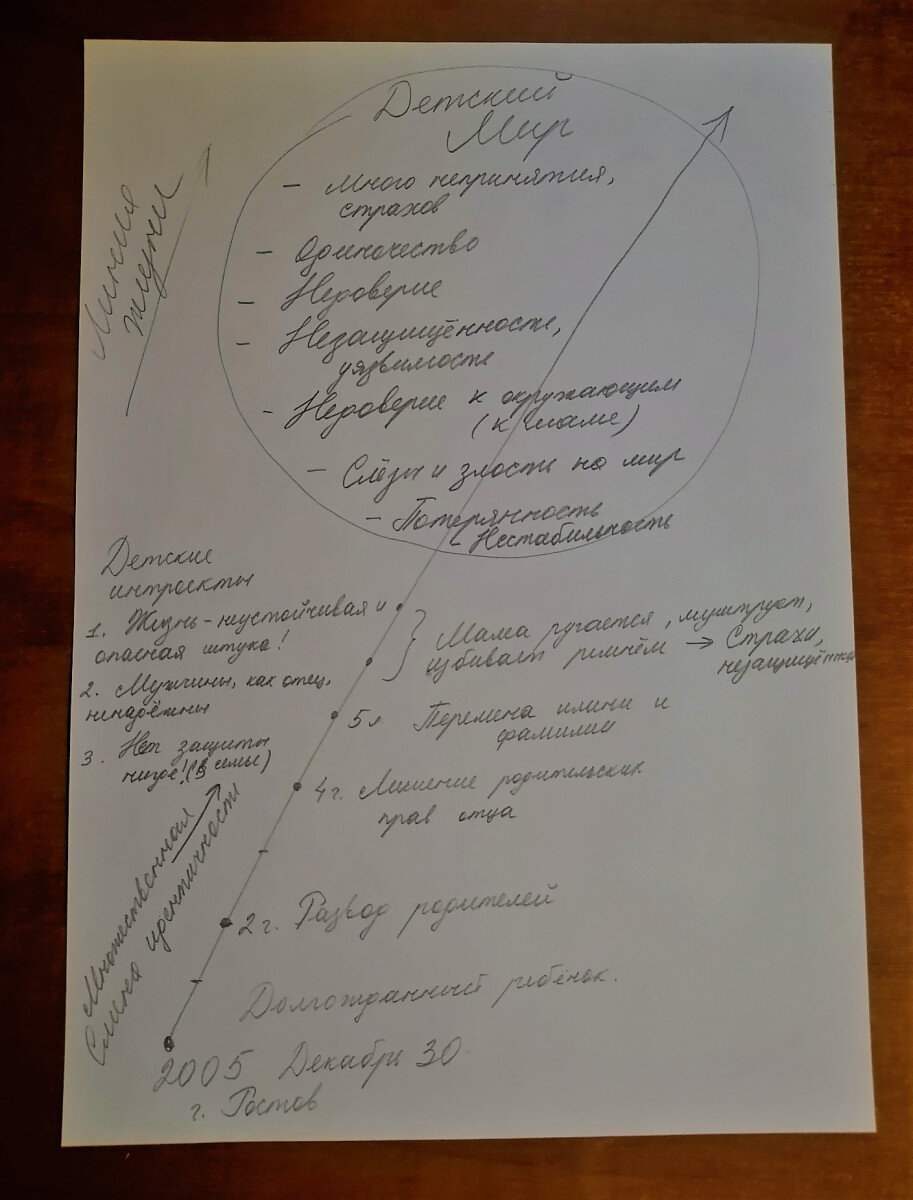 Детский
Мир
Линия
жизни
- Много непринятия,
страхов
- Одиночество
- Недоверие
- Незащищённость,
уязвимость
- Недоверие к окружающим
(к маме)
- Слёзы и злость на мир
- Потерянность
Нестабильность
Детские
интроекты
1. Жизнь - неустойчивая и
опасная штука!
2. Мужчины, как отец,
ненадёжны
3. Нет защиты
нигде! (В семье)
Мама ругается, муштрует,
избивает ремнём → Страхи,
незащищённость
5 л. Перемена имени и
фамилии
4 г. Лишение родительских
прав отца
Множественная
Смена идентичности
2 г. Развод родителей
Долгожданный ребёнок.
2005 Декабрь 30
г. Ростов